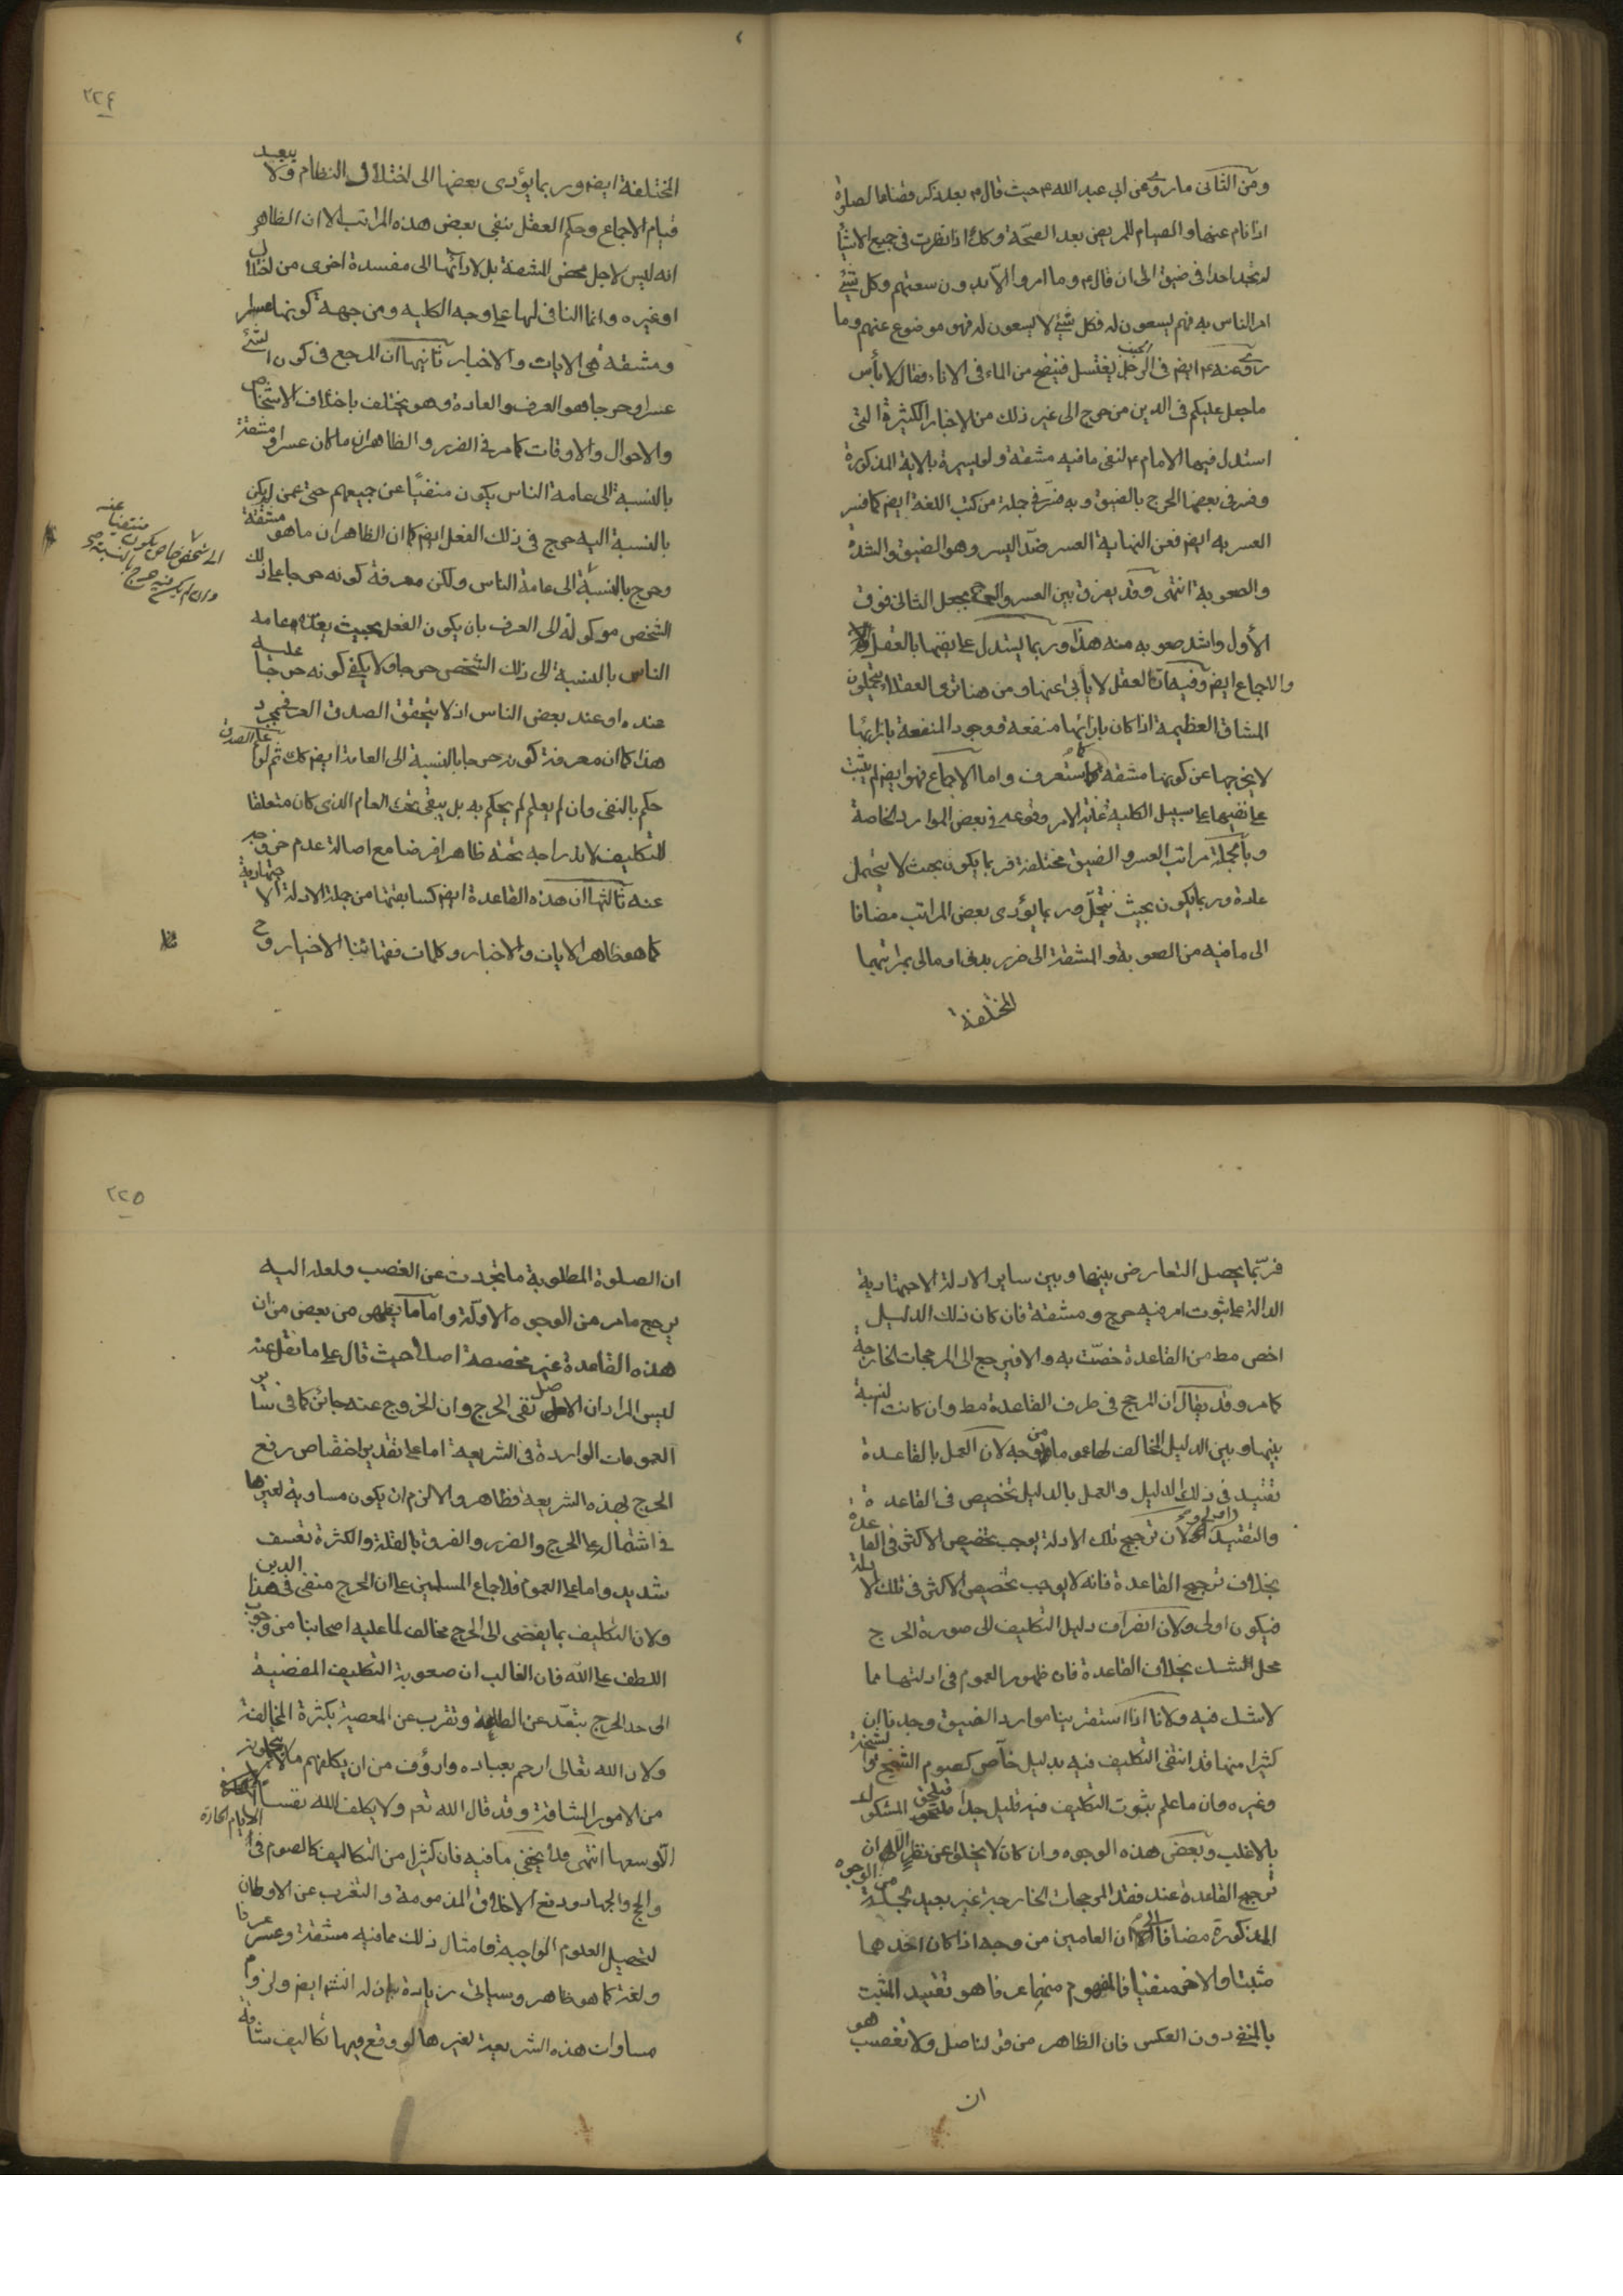 ومن الثانى ما روى عن ابي عبد الله ع حيث قال ع بعد ذكر قضاء الصلوة
اذا نام عنها والصيام للمريض بعد الصحة وكك اذا نظرت فى جميع الاشيا
لم تجد احدا فى ضيق الى ان قال ع وما امروا الا بدون سعتهم وكل شئ
امر الناس به فهم يسعون له فكل شئ لا يسعون له فهو موضوع عنهم وما
روى عنه ع ايض فى الرجل الجنب يغتسل فينضح من الماء فى الاناء فقال لا بأس
ما جعل عليكم فى الدين من حرج الى غير ذلك من الاخبار الكثيرة التى
استدل فيها الامام ع لنفى ما فيه مشقة ولو يسيرة بالاية المذكورة
وفسر فى بعضها الحرج بالضيق وبه فسر فى جملة من كتب اللغة ايض كما فسر
العسر به ايض فعن النهاية العسر ضد اليسر وهو الضيق والشدة
والصعوبة انتهى وقد يفرق بين العسر والحرج بجعل الثانى فوق
الأول واشد صعوبه منه هذا وربما يستدل على نفيها بالعقل
والاجماع ايض وفيه ان العقل لا يأبى عنها ومن هنا ترى العقلاء يتحملون
المشاق العظيمة اذا كان بازائها منفعة ووجود المنفعة بازائها
لا يخرجها عن كونها مشقة كما ستعرف واما الاجماع فهو ايض لم يثبت
على نفيها على سبيل الكلية غاية الامر وقوعه فى بعض الموارد الخاصة
وبالجملة مراتب العسر والضيق مختلفة فربما يكون بحيث لا يتحمل
عادة وربما يكون بحيث يتحمل وربما يؤدى بعض المراتب مضافا
الى ما فيه من الصعوبة والمشقة الى ضرر بدنى او مالى بمراتبهما
المختلفة
٢٢٤
المختلفة ايض وربما يؤدى بعضها الى اختلال النظام ولا يبعد
قيام الاجماع وحكم العقل بنفى بعض هذه المراتب الا ان الظاهر
انه ليس لاجل محض المشقة بل لادائها الى مفسدة اخرى من اختلال
او غيره وانما النافى لها على وجه الكلية ومن جهة كونها عسرا
ومشقة هى الايات والاخبار ثانيها ان المرجع فى كون الشئ
عسرا وحرجا هو العرف والعادة وهو يختلف باختلاف الاشخاص
والاحوال والاوقات كما مر فى الضرر والظاهر ان ما كان عسرا ومشقة
بالنسبة الى عامة الناس يكون منفيا عن جميعهم حتى عمن لم يكن
بالنسبة اليه حرج فى ذلك الفعل ايض كما ان الظاهر ان ما هو مشقة
وحرج بالنسبة الى عامة الناس ولكن معرفة كونه حرجا على ذلك
الى شخص خاص يكون منتفيا عنه
وان لم يكن فيه حرج بالنسبة
الشخص موكولة الى العرف بان يكون الفعل بحيث يعده عامه
الناس بالنسبة الى ذلك الشخص حرجا ولا يكفى كونه حرجا عليه
عنده او عند بعض الناس اذ لا يتحقق الصدق العرفى بمجرد
هذا كما ان معرفة كونه حرجا بالنسبة الى العامة ايض كك ثم لو علم الصدق
حكم بالنفى وان لم يعلم لم يحكم به بل يبقى تحت العام الذى كان متعلقا
للتكليف لاندراجه تحته ظاهرا فرضا مع اصالة عدم خروجه
عنه ثالثها ان هذه القاعدة ايض كسابقتها من جملة الادلة الاجتهادية
كما هو ظاهر الايات والاخبار وكلمات فقهائنا الاخيار وح
فربما يحصل التعارض بينها وبين ساير الادلة الاجتهادية
الدالة على ثبوت امر فيه حرج ومشقة فان كان ذلك الدليل
اخص مط من القاعدة خصت به والا فيرجع الى المرجحات الخارجة
كما مر وقد يقال ان المرجح فى طرف القاعدة مط وان كانت النسبة
بينها وبين الدليل المخالف لها عموما من وجه لان العمل بالقاعدة
تقييد فى ذلك الدليل والعمل بالدليل تخصيص فى القاعدة
والتقييد اولى ولان ترجيح تلك الادلة يوجب تخصيص الاكثر فى القاعدة
بخلاف ترجيح القاعدة فانه لا يوجب تخصيص الاكثر فى تلك الادلة
فيكون اولى ولان انصراف دليل التكليف الى صورة الحرج
محل الشك بخلاف القاعدة فان ظهور العموم فى ادلتها مما
لا شك فيه ولانا اذا استقرينا موارد الضيق وجدنا ان
كثيرا منها قد انتفى التكليف فيه بدليل خاص كصوم الشيخ والشيخة
وغيره وان ما علم بثبوت التكليف فيه قليل جدا فيلحق المشكوك
بالاغلب وبعض هذه الوجوه وان كان لا يخلو عن نظر الا ان
ترجيح القاعدة عند فقد المرجحات الخارجية غير بعيد لجملة من الوجوه
المذكورة مضافا الى ان العامين من وجه اذا كان احدهما
مثبتا والاخر منفيا فالمفهوم منهما عرفا هو تقييد المثبت
بالمنفى دون العكس فان الظاهر من قولنا صل ولا تغصب هو
ان
٢٢٥
ان الصلوة المطلوبة ما تجردت عن الغصب ولعله اليه
يرجع ما مر من الوجوه الاولة واما ما يظهر من بعض من ان
هذه القاعدة غير مخصصة اصلا حيث قال على ما نقل عنه
ليس المراد ان الاصل نفى الحرج وان الخروج عنه جائز كما فى ساير
العمومات الواردة فى الشريعة اما على تقدير اختصاص رفع
الحرج بهذه الشريعة فظاهر والا لزم ان يكون مساوية لغيرها
فى اشتمالها على الحرج والضرر والفرق بالقلة والكثرة تعسف
شديد واما على العموم فلاجماع المسلمين على ان الحرج منفى فى هذا الدين
ولان التكليف بما يفضى الى الحرج مخالف لما عليه اصحابنا من وجوب
اللطف على الله فان الغالب ان صعوبة التكليف المفضية
الى حد الحرج يبعد عن الطاعة وتقرب عن المعصية بكثرة المخالفة
ولان الله تعالى ارحم بعباده وارؤف من ان يكلفهم ما لا يتحملونه
من الامور الشاقة وقد قال الله تعم ولا يكلف الله نفسا
الا وسعها انتهى فلا يخفى ما فيه فان كثيرا من التكاليف كالصوم فى الايام الحارة
والحج والجهاد ودفع الاخلاق المذمومة والتغرب عن الاوطان
لتحصيل العلوم الواجبة وامثال ذلك مما فيه مشقة وعسر عرفا
ولغة كما هو ظاهر وسياتى زيادة بيان له انشا ايض ولزوم
مساوات هذه الشريعة لغيرها لو وقع فيها تكاليف شاقة